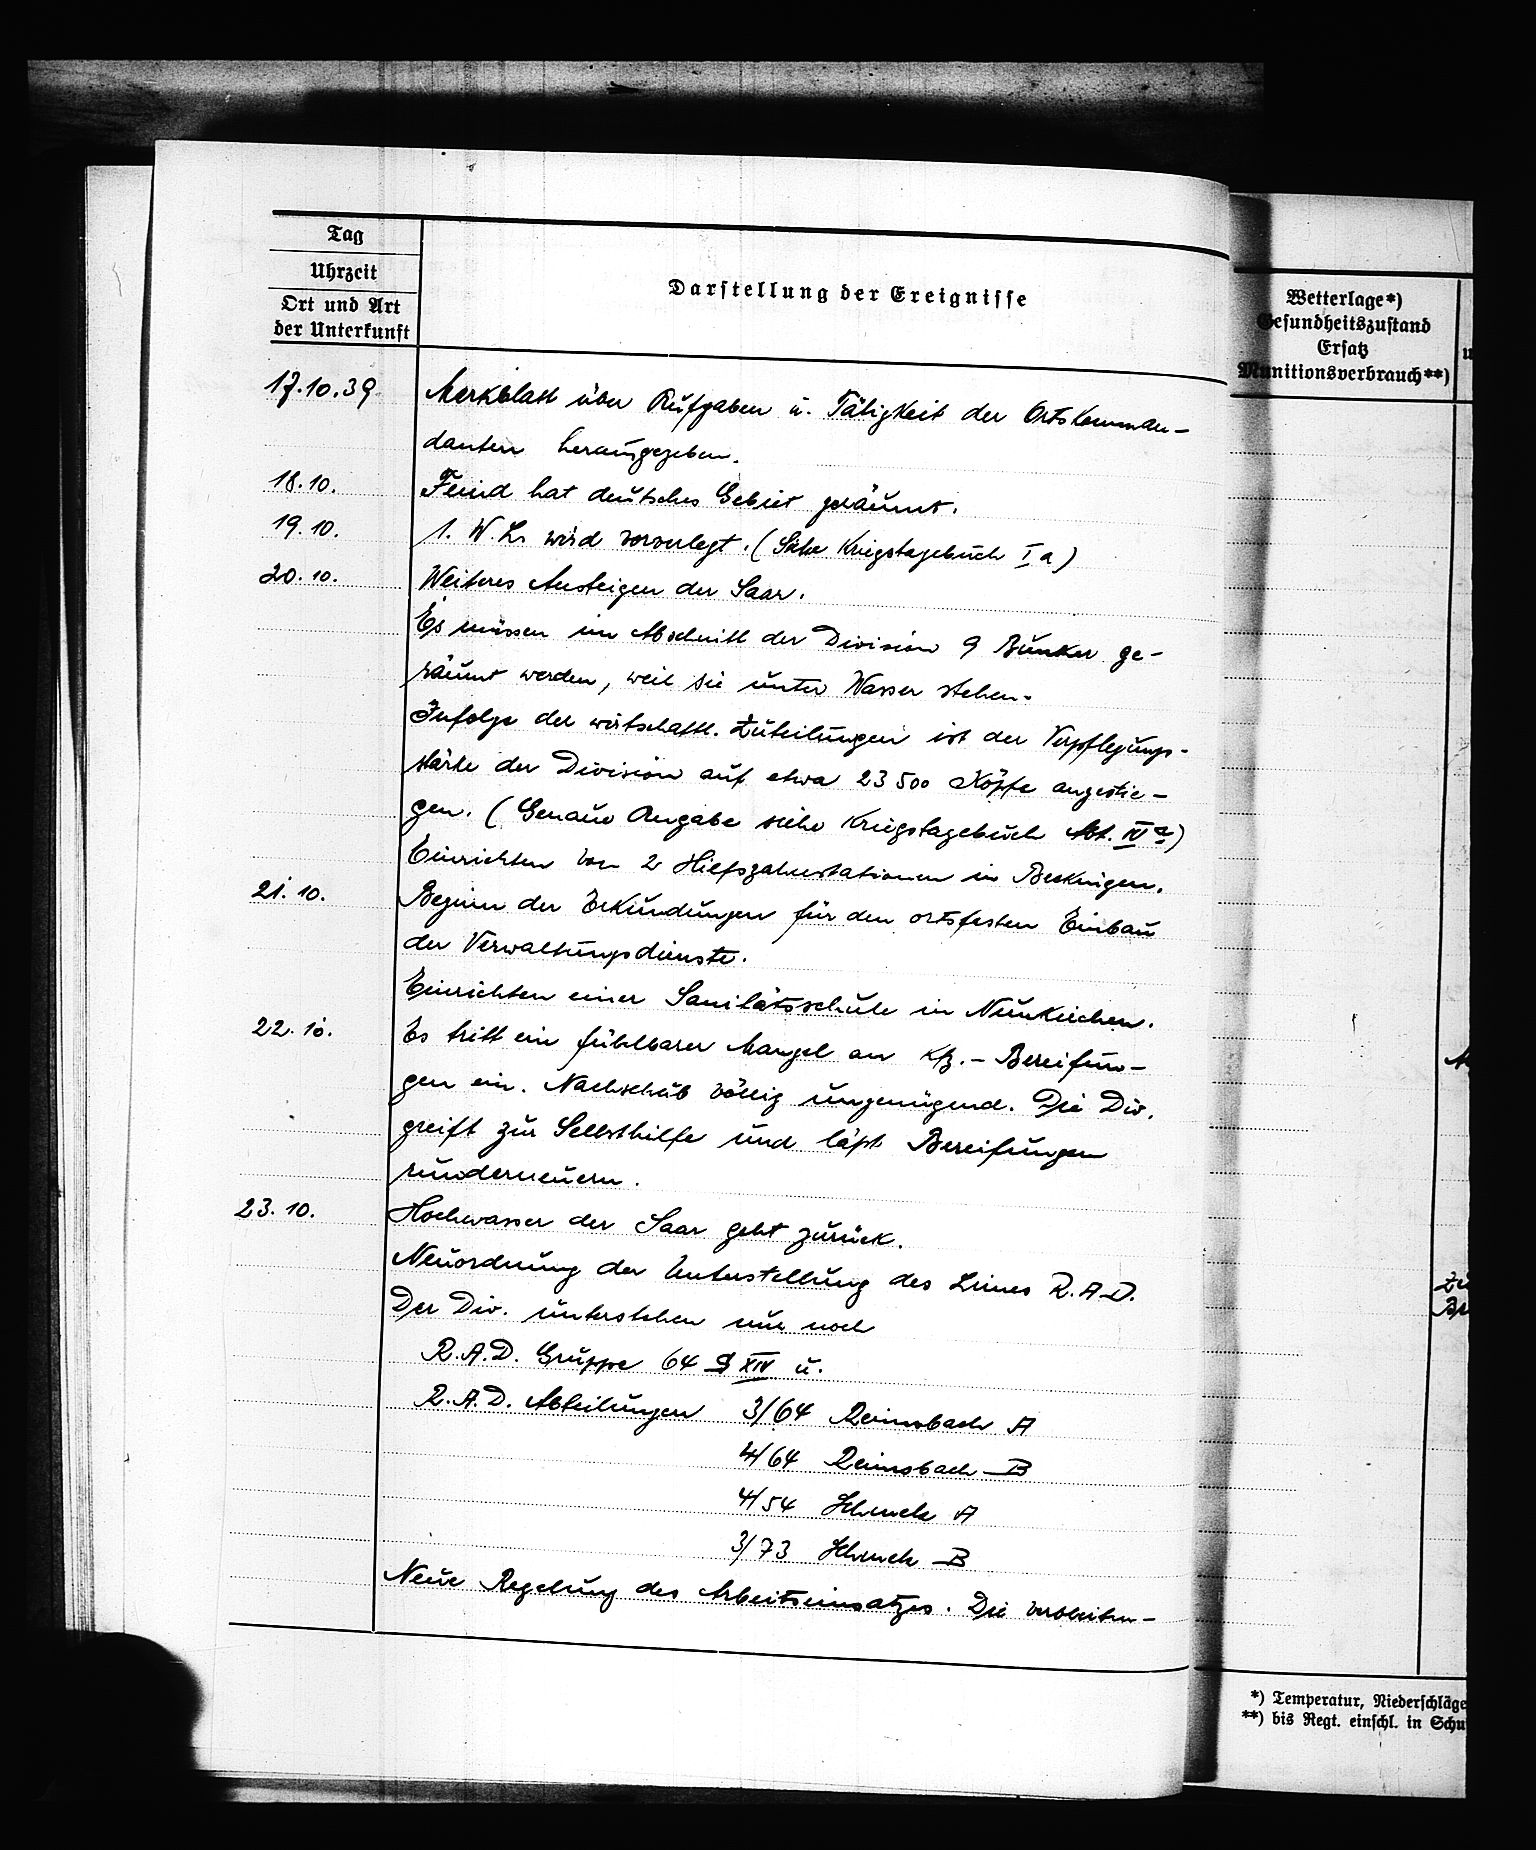 Tag
Uhrzeit
Ort und Art
der Unterkunft
Darstellung der Ereignisse
17.10.39. Merkblatt über Aufgaben u. Tätigkeit der Ortskomman-
danten herausgegeben.
18.10. Feind hat deutsches Gebiet geräumt.
19.10. 1. W.L. wird vorverlegt. (Siehe Kriegstagebuch Ia)
20.10. Weiteres Ansteigen der Saar.
Es müssen im Abschnitt der Division 9 Bunker ge-
räumt werden, weil sie unter Wasser stehen.
Infolge der wirtschaftl. Zuteilungen ist der Verpflegungs-
stärke der Division auf etwa 23500 Köpfe angestie-
gen. (Genaue Angabe siehe Kriegstagebuch Abt. IVa)
Einrichten von 2 Hilfszahnstationen in Beckingen.
21.10. Beginn der Erkundungen für den ortsfesten Einbau
der Verwaltungsdienste.
Einrichten einer Sanitätsschule in Neunkirchen.
22.10. Es tritt ein fühlbarer Mangel an Kfz.-Bereifun-
gen ein. Nachschub völlig ungenügend. Die Div.
greift zur Selbsthilfe und läßt Bereifungen
runderneuern.
23.10. Hochwasser der Saar geht zurück.
Neuordnung der Unterstellung des R.A.D.
Der Div. unterstehen nur noch
R.A.D. Gruppe 64 XIV u.
R.A.D. Abteilungen 3/64 Reimsbach A
4/64 Reimsbach B
4/54 A
3/73 B
Neue Regelung des Arbeitseinsatzes. Die
Wetterlage*)
Gesundheitszustand
Ersatz
Munitionsverbrauch**)
*) Temperatur, Niederschläge
**) bis Regt. einschl. in Schu